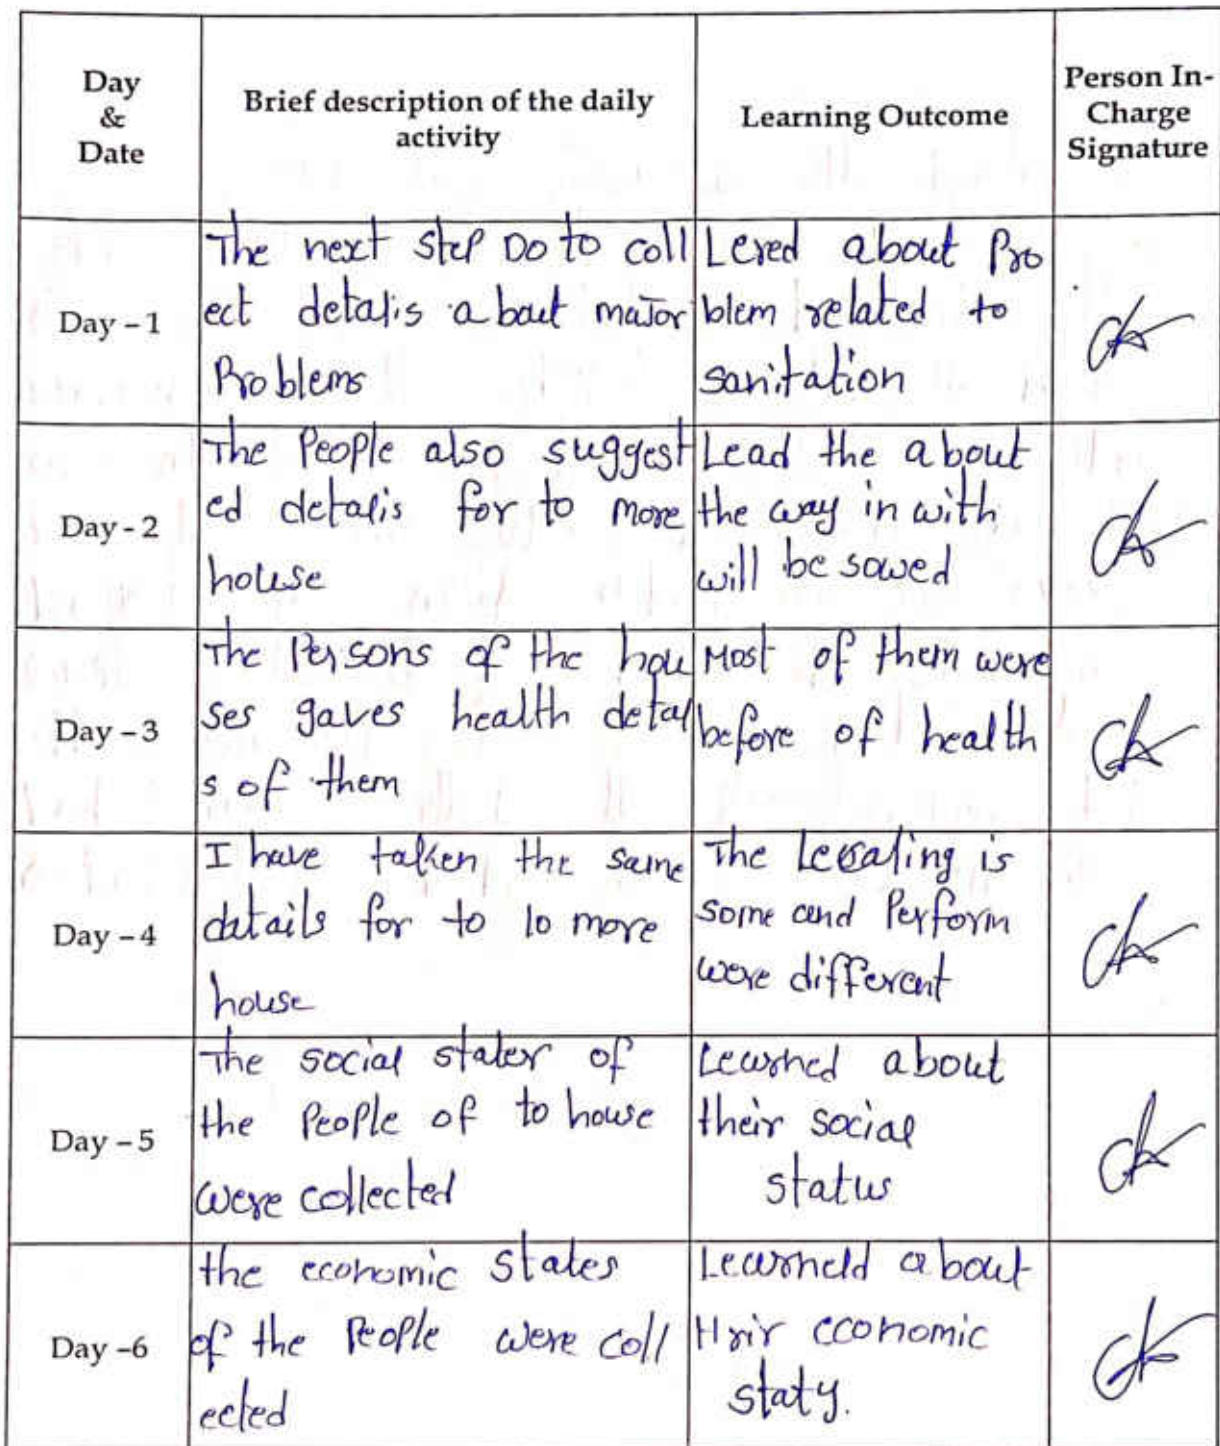 Day
&
Date
Brief description of the daily
activity
Learning Outcome
Person In-
Charge
Signature
Day – 1
The next step Do to coll
ect detalis about major
Problems
Lered about Pro
blem related to
sanitation
Day - 2
The People also suggest
ed detalis for to more
house
Lead the about
the way in with
will be sowed
Day – 3
The Persons of the hou
ses gaves health detai
s of them
Most of them were
before of health
Day – 4
I have taken the same
details for to 10 more
house
The is
some and Perform
were different
Day – 5
The social stater of
the People of to house
were collected
Learned about
their social
status
Day –6
the economic States
of the People were coll
ected
Learneld about
economic
staty.